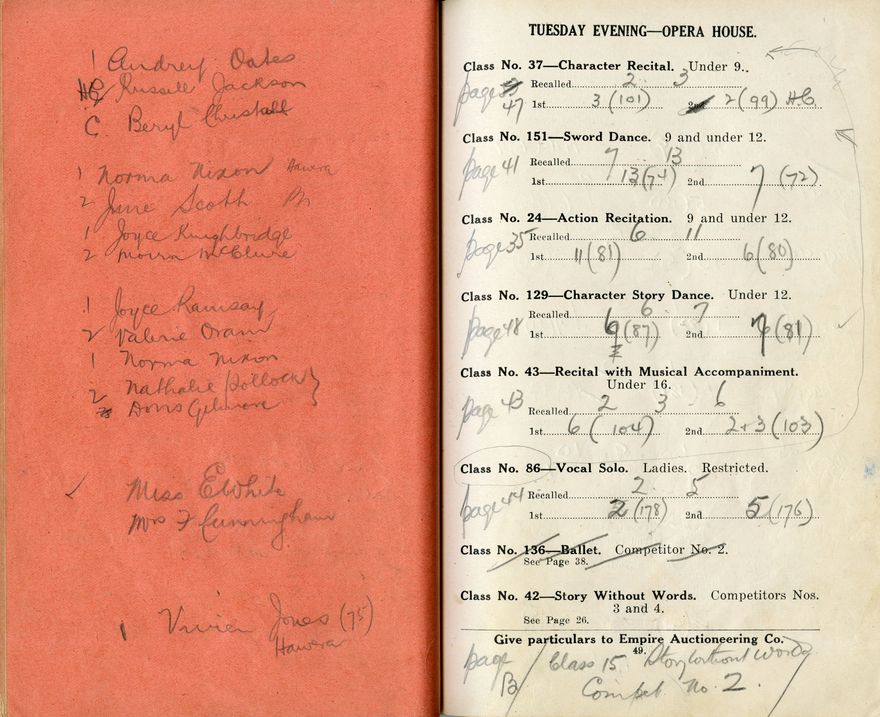 1 Audrey Oates
HC Russell Jackson
C. Beryl
1 Norma Nixon Hawera
2 June Scott
1 Joyce Knightbridge
2 Moira McClure
1 Joyce Ramsay
2 Valerie Oram
1 Norma Nixon
2 Nathalie Pollock }
Doris Gilmore
✓ Miss E White
Mrs F Cunningham
1 Vivien Jones (75)
Hawera
TUESDAY EVENING—OPERA HOUSE.
Class No. 37—Character Recital. Under 9.
page
Recalled 2 3
47 1st 3 (101) 2nd 2 (99) H.C.
Class No. 151—Sword Dance. 9 and under 12.
page 41 Recalled 7 13
1st 13 (74) 2nd 7 (72)
Class No. 24—Action Recitation. 9 and under 12.
page 35 Recalled 6 11
1st 11 (81) 2nd 6 (80)
Class No. 129—Character Story Dance. Under 12.
Recalled 1 6 7
page 48 1st (87) 2nd (81)
Class No. 43—Recital with Musical Accompaniment.
Under 16.
page 43 Recalled 2 3 6
1st 6 (104) 2nd 2+3 (103)
Class No. 86—Vocal Solo. Ladies. Restricted.
page 44 Recalled 2 5
1st 2 (178) 2nd 5 (176)
Class No. 136—Ballet. Competitor No. 2.
See Page 38.
Class No. 42—Story Without Words. Competitors Nos.
3 and 4.
See Page 26.
Give particulars to Empire Auctioneering Co.
49.
page Class 15 Story without Words
13 Compet. No. 2.